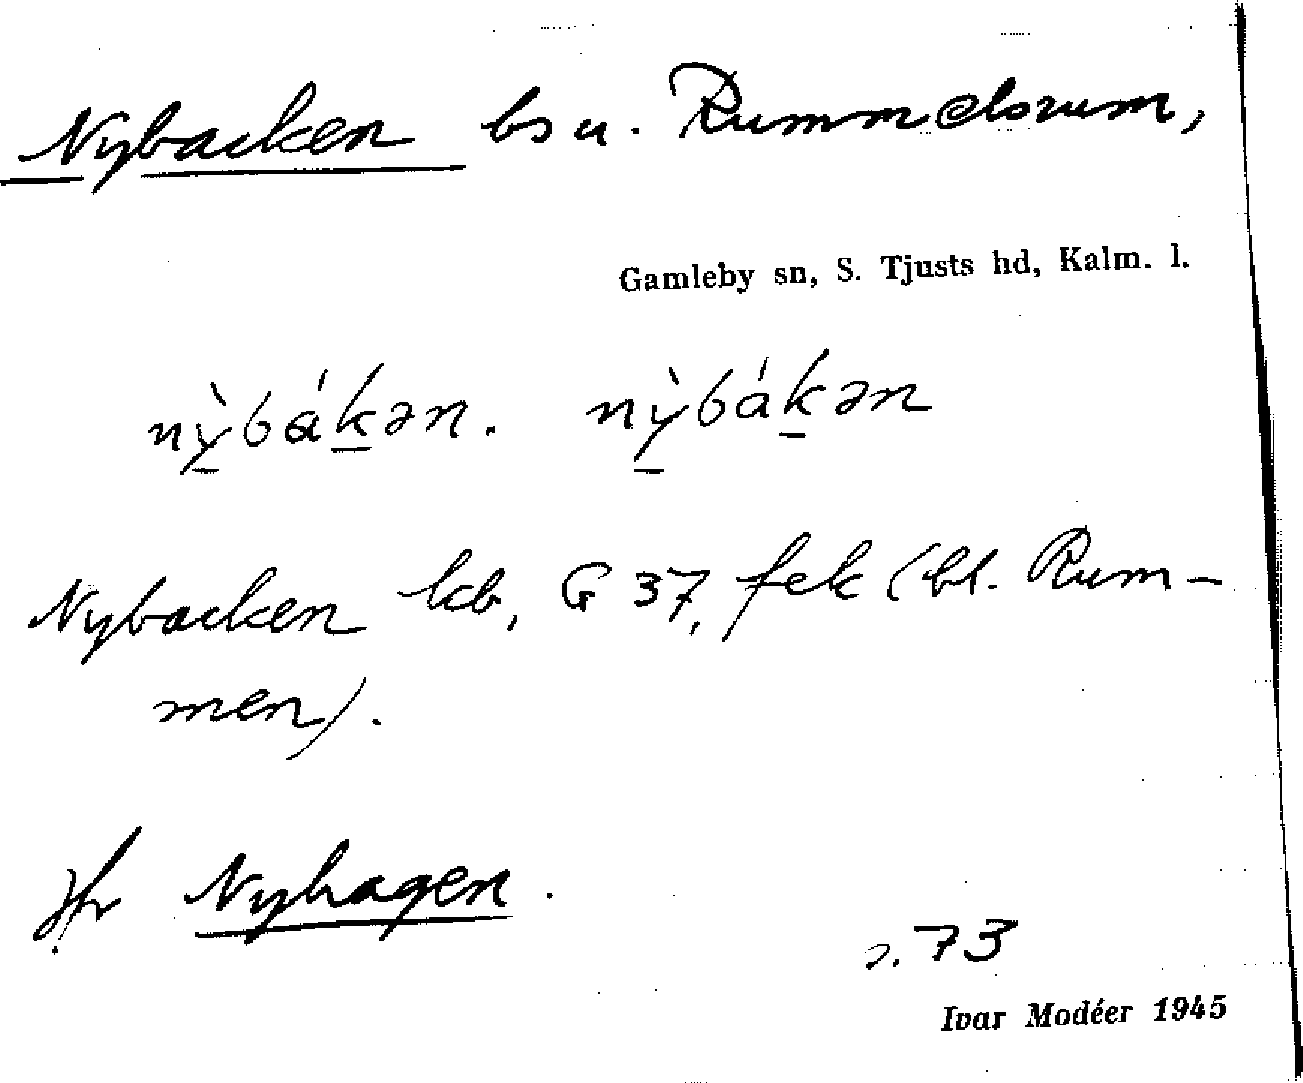 Nybacken bs u. Rummelsrum,
Gamleby sn, S. Tjusts hd, Kalm. l.
nỳbákən. nỳbákən
Nybacken kb, G 37, fek (bl. Rum-
men).
Jfr Nyhagen.
s. 73
Ivar Modéer 1945